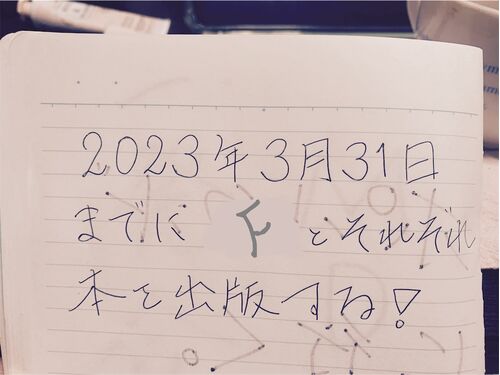 2023年3月31日
までに とそれぞれ
本を出版する!